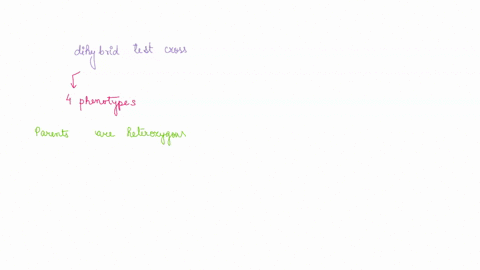 dihybrid test cross
4 phenotypes
Parents are heterozygous